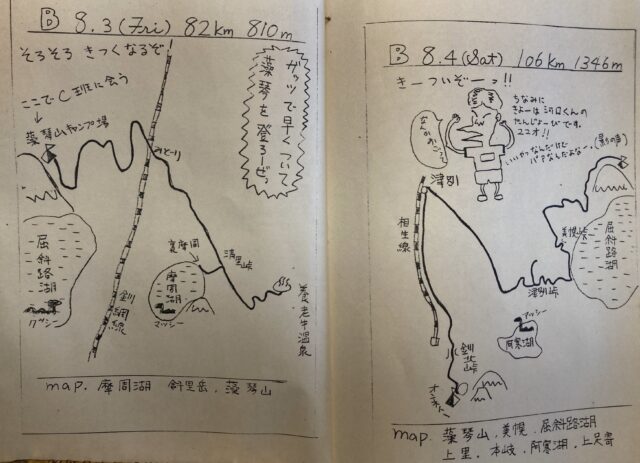 B 8.3 (Fri) 82km 810m
そろそろ きつくなるぞ
ガッツで早くついて
藻琴を登ろーぜっ
ここでC班に会う
藻琴山キャンプ場
みどーり
屈斜路湖
クッシー
釧網線
裏摩周
摩周湖
マッシー
清里峠
養老牛温泉
map. 摩周湖 斜里岳. 藻琴山
B 8.4 (Sat) 106km 1346m
きーついぞーっ!!
ちなみに
きょーは河口くんの
たんじょーびです。
22才!!
いいやつなんだけど
バアなんだよなー。(影の声)
津別
相生線
美幌峠
屈斜路湖
津別峠
マッシー
阿寒湖
釧北峠
オンネトー
map. 藻琴山. 美幌. 屈斜路湖
上里. 本岐. 阿寒湖. 上足寄